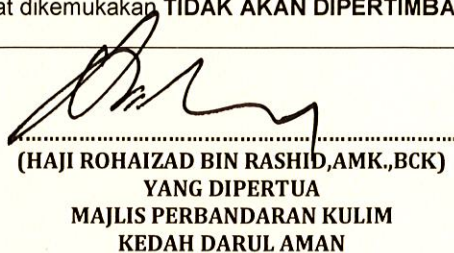 at dikemukakan TIDAK AKAN DIPERTIMBA
(HAJI ROHAIZAD BIN RASHID,AMK.,BCK)
YANG DIPERTUA
MAJLIS PERBANDARAN KULIM
KEDAH DARUL AMAN